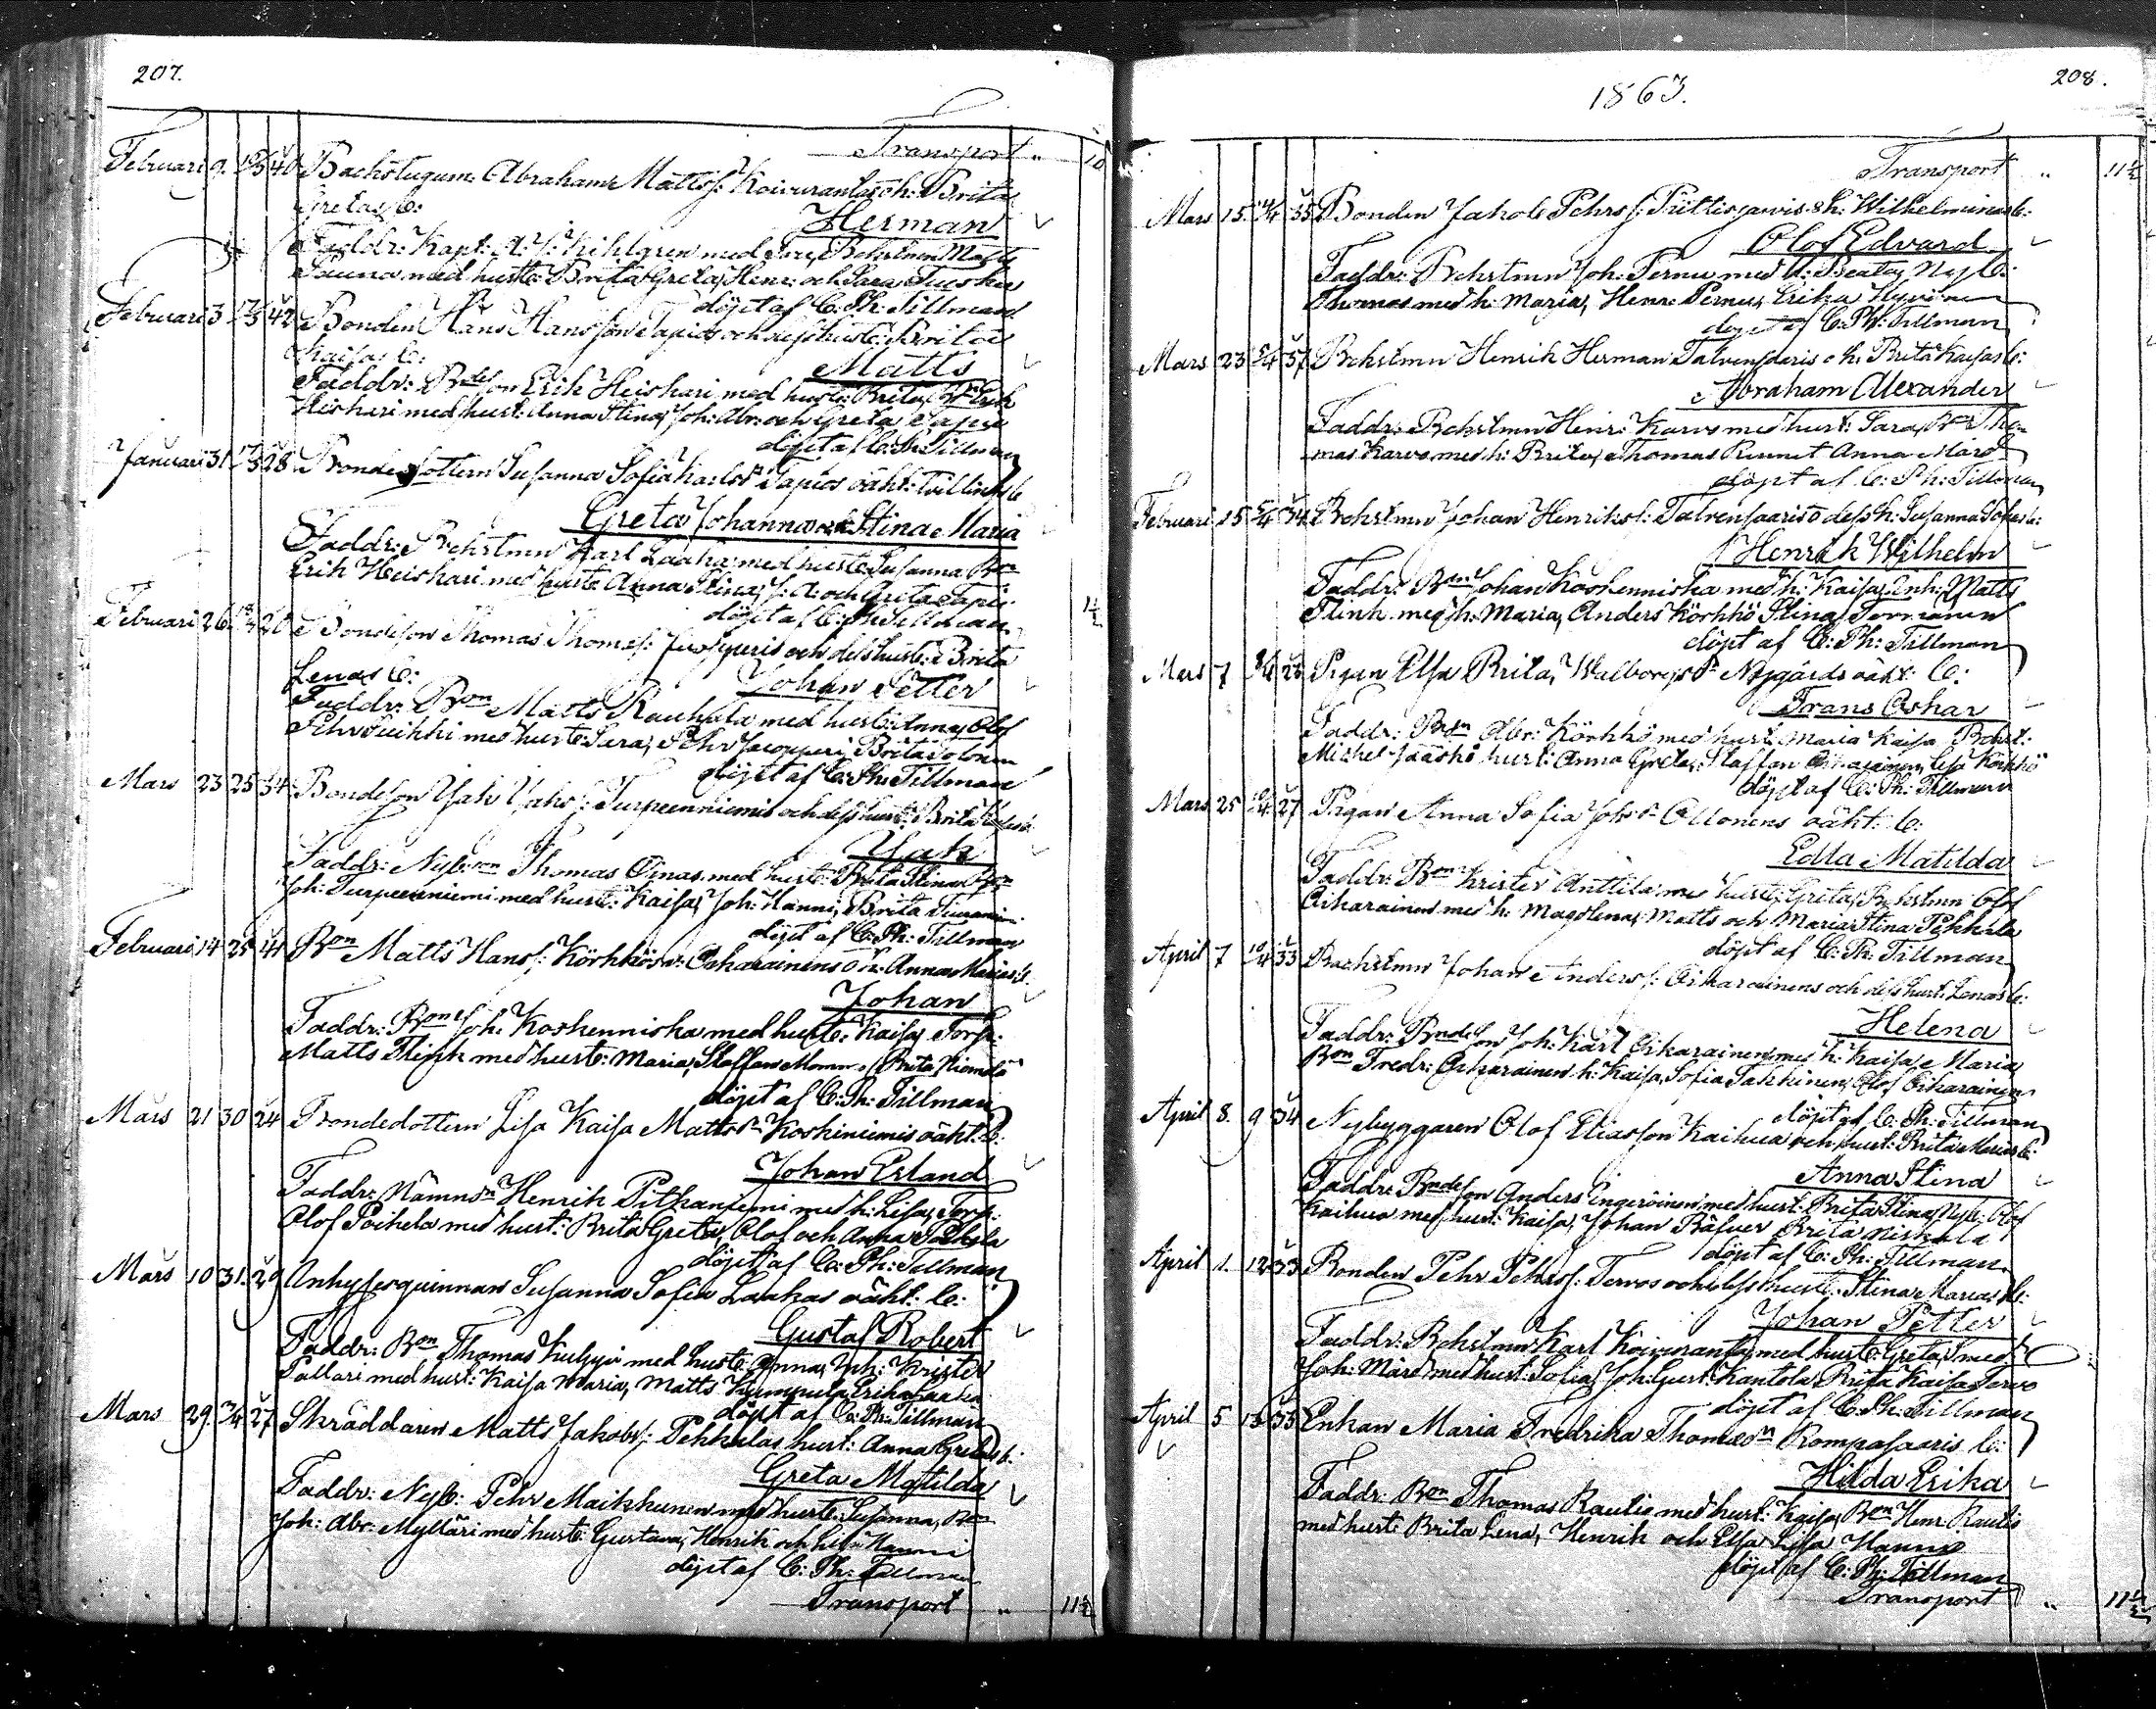 207.
Transport " 10
Februari 9. 10/3 40 Backstugum. Abraham Mattss: Koivurantas o h: Brita
Gretas b:
Herman
Faddr: Kapt: A. J: Kihlgren med Fru, Bchstmn Matts
Fauna med hust: Brita Greta, Henr: och Sara
döpt af C: Ph: Tillman
Februari 3 17/3 42 Bonden Hans Hansson Tapios och dess hust: Brita
Kaisas b:
Matts
Faddr: Bdeson Erik Heiskari med hust: Brita, Bn Erik
Heiskari med hust: Anna Stina, Joh: Abr: och Greta Tapio
döpt af C: Ph: Tillman
Januari 31 17/3 28 Bondedottern Susanna Sofia Karlsdr Tapios oäkt: tvillingb
Greta Johanna och Stina Maria
Faddr: Bchstmn Karl Laaka med hust: Susanna Bon
Erik Heiskari med hust: Anna Stina, J: A: och Greta Tapio
döpt af C: Ph: Tillman 1 1/2
Februari 26 18/3 20 Bondeson Thomas Thomass: och dess hust: Brita
Lenas b:
Johan Petter
Faddr: Bon Matts Rauhala med hust: Anna, Olof
Pehr med hust: Sara, Pehr Brita
döpt af C: Ph: Tillman
Mars 23 25 34 Bondeson Jak Jaks: Turpeenniemis och dess hust: Brita
Jak
Faddr: Nyb:son Thomas Oinas med hust: Brita Stina, Bon
Joh: Turpeenniemi med hust: Kaisa, Joh: Hanni, Brita
döpt af C: Ph: Tillman
Februari 14 25 41 Bon Matts Hanss: Körkkös v: Oikarainens o h: Anna Marias b:
Johan
Faddr: Bon Joh: Koskenniska med hust: Kaisa, Torp:
Matts Flink med hust: Maria, Staffan Brita Niemelä
döpt af C: Ph: Tillman
Mars 21 30 24 Bondedottern Lisa Kaisa Mattsdr Koskiniemis oäkt: b:
Johan Erland
Faddr: Nämndn Henrik Pitkäniemi med h: Lisa, Torp:
Olof Poikela med hust: Brita Greta, Olof och Anna Poikela
döpt af C: Ph: Tillman
Mars 10 31. 29 Enhyseqvinnan Susanna Sofia Laakas oäkt: b:
Gustaf Robert
Faddr: Bon Thomas med hust: Anna, Joh: Krister
Pallari med hust: Kaisa Maria, Matts Kumpula, Erika Laaka
döpt af C: Ph: Tillman
Mars 29. 3/4 27 Skräddaren Matts Jakobs: Pekkalas hust: Anna Gretas b:
Greta Matilda
Faddr: Nyb: Pehr med hust: Susanna, Bon
Joh: Abr: Mylläri med hust: Gustava, Henrik och Lisa Hanni
döpt af C: Ph: Tillman
Transport " 11 1/2
208.
1863.
Transport " 11 1/2
Mars 15. 4/4 35 Bonden Jakob Pehrs: Piittisjärvis o h: Wilhelminas b:
Olof Edvard
Faddr: Bchstmn Joh: Pernu med h: Beata, Nyb:
Thomas med h: Maria, Henr: Pernu, Erika Hyvönen
döpt af C: Ph: Tillman
Mars 23 5/4 37 Bchstmn Henrik Herman Talvensaaris o h: Brita Kaisas b:
Abraham Alexander
Faddr: Bchstmn Henr: Karvo med hust: Sara, Bon Tho-
mas Karvo med h: Brita, Thomas Anna
döpt af C: Ph: Tillman
Februari 15 5/4 34 Bchstmn Johan Henrikss: Talvensaaris o dess h: Susanna Sofias b:
Henrik Wilhelm
Faddr: Bon Johan Koskenniska med h: Kaisa, Enk: Matts
Flink med h: Maria, Anders Körkkö Stina Tormänen
döpt af C: Ph: Tillman
Mars 7 28 Pigan Elsa Brita Walborgsdr Nygårds oäkt: b:
Frans Oskar
Faddr: Bon Abr: Körkkö med hust: Maria Kaisa, Bchst:
Michel Jääskö hust: Anna Greta, Staffan Oikarainen, Lisa Körkkö
döpt af C: Ph: Tillman
Mars 25 27 Pigan Anna Sofia Johsdr Ollonens oäkt: b:
Edla Matilda
Faddr: Bon Krister Anttila med hust: Greta, Bchstmn Olof
Oikarainen med h: Magdlena, Matts och Maria Stina Pekkala
döpt af C: Ph: Tillman
April 7 10/4 33 Bachstmn Johan Anderss: Oikarainens och dess hust: Lenas b:
Helena
Faddr: Bondeson Joh: Karl Oikarainen med h: Kaisa Maria,
Bon Fredr: Oikarainen h: Kaisa, Sofia Takkinen, Olof Oikarainen
döpt af C: Ph: Tillman
April 8. 9 34 Nybyggaren Olof Eliasson Kaihua och hust: Brita Marias b:
Anna Stina
Faddr: Bondeson Anders Engeroinen med hust: Brita Stina, Nyb: Olof
Kaihua med hust: Kaisa, Johan Räfver Brita Niskala
döpt af C: Ph: Tillman
April 1. 12 33 Bonden Pehr Pehrss: Tervos och dess hust: Stina Marias b:
Johan Petter
Faddr: Bchstmn Karl Koivuranta med hust: Greta, Smed
Joh: med hust: Sofia, Joh: Gust: Kantola, Brita Kaisa Tervo
döpt af C: Ph: Tillman
April 5 13 35 Enkan Maria Fredrika Thomasdr Rompasaaris b:
Hilda Erika
Faddr: Bon Thomas Rautio med hust: Kaisa, Bon Henr: Rautio
med hust: Brita Lena, Henrik och Elsa Lisa Hannu
döpt af C: Ph: Tillman
Transport " 11 1/2